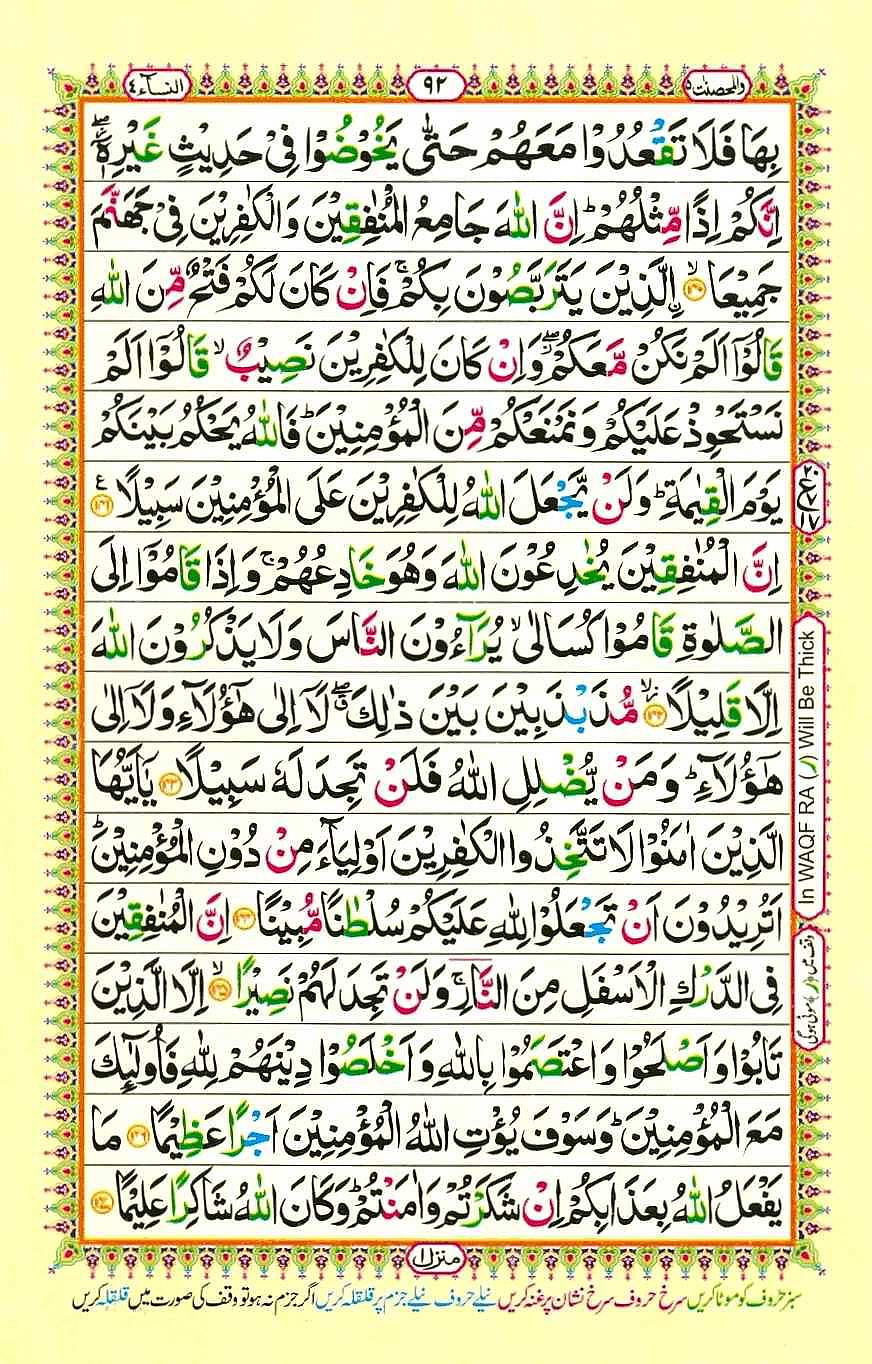 والمحصنت ٥
٩٢
النسآء ٤
بِهَا فَلَا تَقْعُدُوْا مَعَهُمْ حَتّٰى يَخُوْضُوْا فِىْ حَدِيْثٍ غَيْرِهٖٓ ۖ
اِنَّكُمْ اِذًا مِّثْلُهُمْ ؕ اِنَّ اللّٰهَ جَامِعُ الْمُنٰفِقِيْنَ وَالْكٰفِرِيْنَ فِىْ جَهَنَّمَ
جَمِيْعَا ۙ‏﴿۱۴۰﴾ اۨلَّذِيْنَ يَتَرَبَّصُوْنَ بِكُمْ ۚ فَاِنْ كَانَ لَكُمْ فَتْحٌ مِّنَ اللّٰهِ
قَالُوْۤا اَلَمْ نَكُنْ مَّعَكُمْ ۖ وَاِنْ كَانَ لِلْكٰفِرِيْنَ نَصِيْبٌ ۙ قَالُوْۤا اَلَمْ
نَسْتَحْوِذْ عَلَيْكُمْ وَنَمْنَعْكُمْ مِّنَ الْمُؤْمِنِيْنَ ؕ فَاللّٰهُ يَحْكُمُ بَيْنَكُمْ
يَوْمَ الْقِيٰمَةِ ؕ وَلَنْ يَّجْعَلَ اللّٰهُ لِلْكٰفِرِيْنَ عَلَى الْمُؤْمِنِيْنَ سَبِيْلًا ﴿۱۴۱﴾ ع
اِنَّ الْمُنٰفِقِيْنَ يُخٰدِعُوْنَ اللّٰهَ وَهُوَ خَادِعُهُمْ ۚ وَاِذَا قَامُوْۤا اِلَى
الصَّلٰوةِ قَامُوْا كُسَالٰى ۙ يُرَآءُوْنَ النَّاسَ وَلَا يَذْكُرُوْنَ اللّٰهَ
اِلَّا قَلِيْلًا ﴿۱۴۲﴾ۙ مُّذَبْذَبِيْنَ بَيْنَ ذٰلِكَ ۖ ق لَاۤ اِلٰى هٰٓؤُلَآءِ وَلَاۤ اِلٰى
هٰٓؤُلَآءِ ؕ وَمَنْ يُّضْلِلِ اللّٰهُ فَلَنْ تَجِدَ لَهٗ سَبِيْلًا ﴿۱۴۳﴾ يٰۤاَيُّهَا
الَّذِيْنَ اٰمَنُوْا لَا تَتَّخِذُوا الْكٰفِرِيْنَ اَوْلِيَآءَ مِنْ دُوْنِ الْمُؤْمِنِيْنَ ؕ
اَتُرِيْدُوْنَ اَنْ تَجْعَلُوْا لِلّٰهِ عَلَيْكُمْ سُلْطٰنًا مُّبِيْنًا ﴿۱۴۴﴾ اِنَّ الْمُنٰفِقِيْنَ
فِى الدَّرْكِ الْاَسْفَلِ مِنَ النَّارِ ۚ وَلَنْ تَجِدَ لَهُمْ نَصِيْرًا ﴿۱۴۵﴾ۙ اِلَّا الَّذِيْنَ
تَابُوْا وَاَصْلَحُوْا وَاعْتَصَمُوْا بِاللّٰهِ وَاَخْلَصُوْا دِيْنَهُمْ لِلّٰهِ فَاُولٰٓئِكَ
مَعَ الْمُؤْمِنِيْنَ ؕ وَسَوْفَ يُؤْتِ اللّٰهُ الْمُؤْمِنِيْنَ اَجْرًا عَظِيْمًا ﴿۱۴۶﴾ مَا
يَفْعَلُ اللّٰهُ بِعَذَابِكُمْ اِنْ شَكَرْتُمْ وَاٰمَنْتُمْ ؕ وَكَانَ اللّٰهُ شَاكِرًا عَلِيْمًا ﴿۱۴۷﴾
In WAQF RA (ر) Will Be Thick
وقف میں ﴿ر﴾ موٹی ہوگی
منزل ۱
سبز حروف کو موٹا کریں سرخ حروف سرخ نشان پر غنہ کریں نیلے حروف نیلے جزم پر قلقلہ کریں اگر جزم نہ ہو تو وقف کی صورت میں قلقلہ کریں